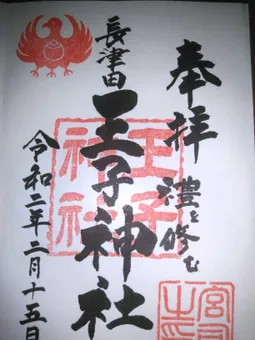 奉拝
禮を修む
長津田
王子神社
令和二年二月十五日
王子
神社